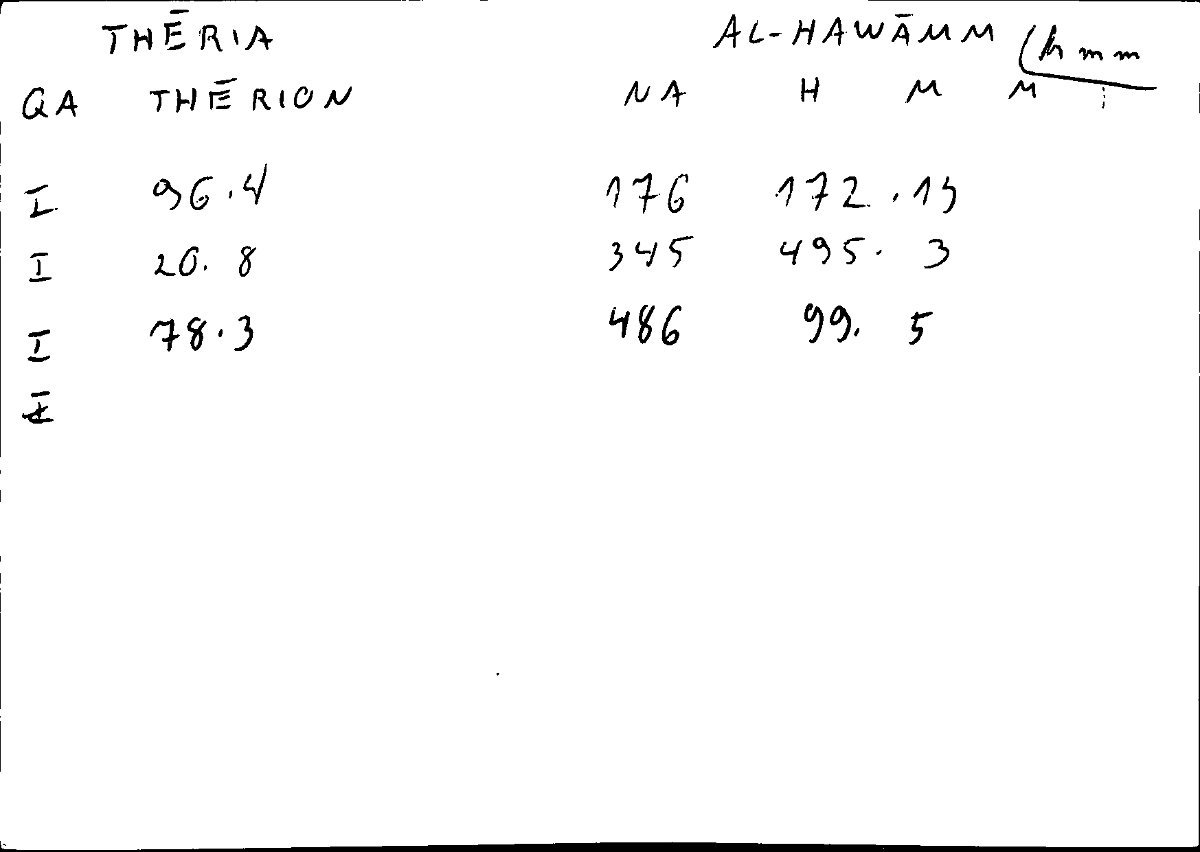 THĒRIA AL-HAWĀMM (hmm
QA THĒRION NA H M M
I 96.4 176 172.15
I 20.8 345 495.3
I 78.3 486 99.5
I